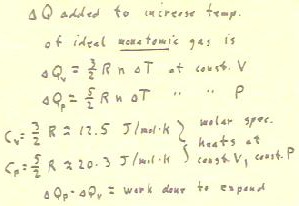 ΔQ added to increase temp.
of ideal monatomic gas is
ΔQv = 3/2 R n ΔT at const. V
ΔQp = 5/2 R n ΔT " " P
Cv = 3/2 R ≈ 12.5 J/mol·K } molar spec.
Cp = 5/2 R ≈ 20.3 J/mol·K } heats at const. V, const. P
ΔQp - ΔQv = work done to expand